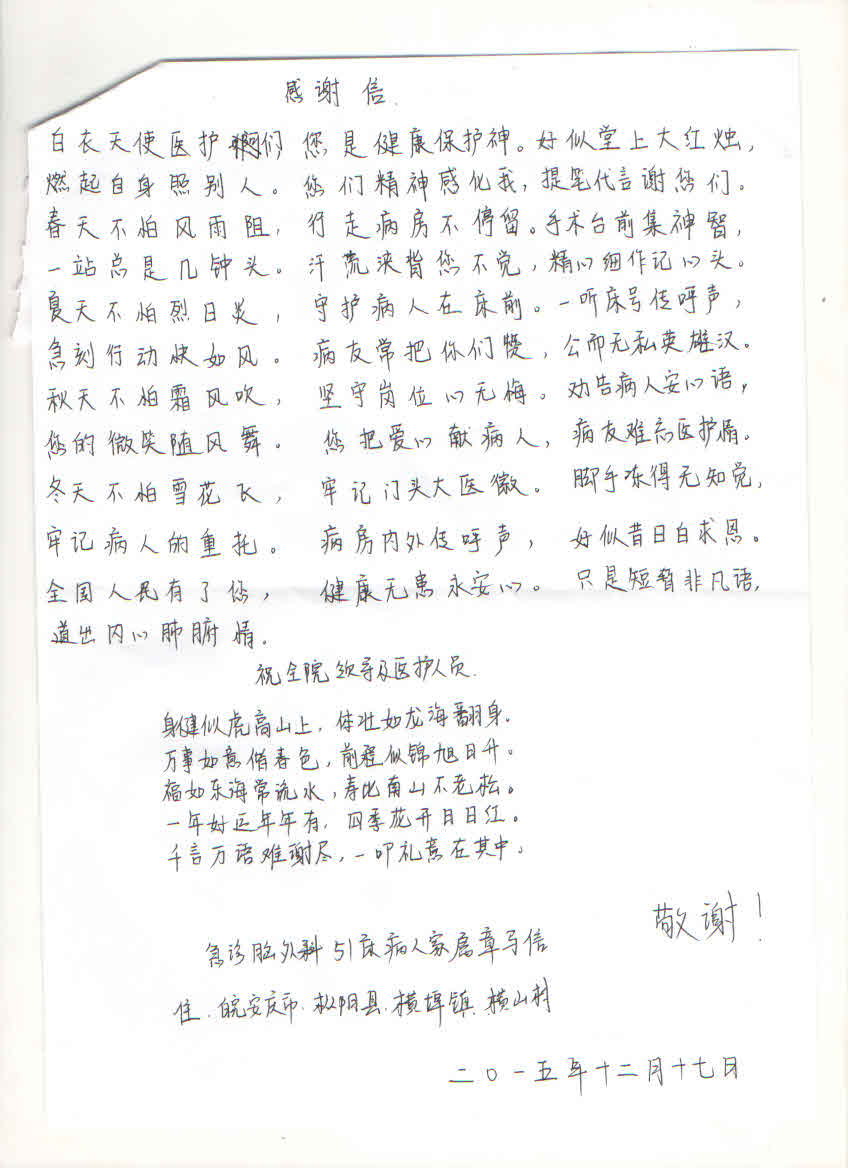 感谢信
白衣天使医护们 您是健康保护神。好似堂上大红烛，
燃起自身照别人。您们精神感化我，提笔代言谢您们。
春天不怕风雨阻，行走病房不停留。手术台前集神智，
一站总是几钟头。汗流浃背您不觉，精心细作记心头。
夏天不怕烈日炎，守护病人在床前。一听床号传呼声，
急刻行动快如风。病友常把你们赞，公而无私英雄汉。
秋天不怕霜风吹，坚守岗位心无悔。劝告病人安心语，
您的微笑随风舞。您把爱心献病人，病友难忘医护情。
冬天不怕雪花飞，牢记门头大医徽。脚手冻得无知觉，
牢记病人的重托。病房内外传呼声，好似昔日白求恩。
全国人民有了您，健康无患永安心。只是短暂非凡语，
道出内心肺腑情。
祝全院领导及医护人员
身健似虎高山上，体壮如龙海翻身。
万事如意偕春色，前程似锦旭日升。
福如东海常流水，寿比南山不老松。
一年好运年年有，四季花开日日红。
千言万语难谢尽，一叩礼意在其中。
敬谢！
急诊脑外科51床病人家属章马信
住.皖安庆市.枞阳县.横埠镇.横山村
二〇一五年十二月十七日